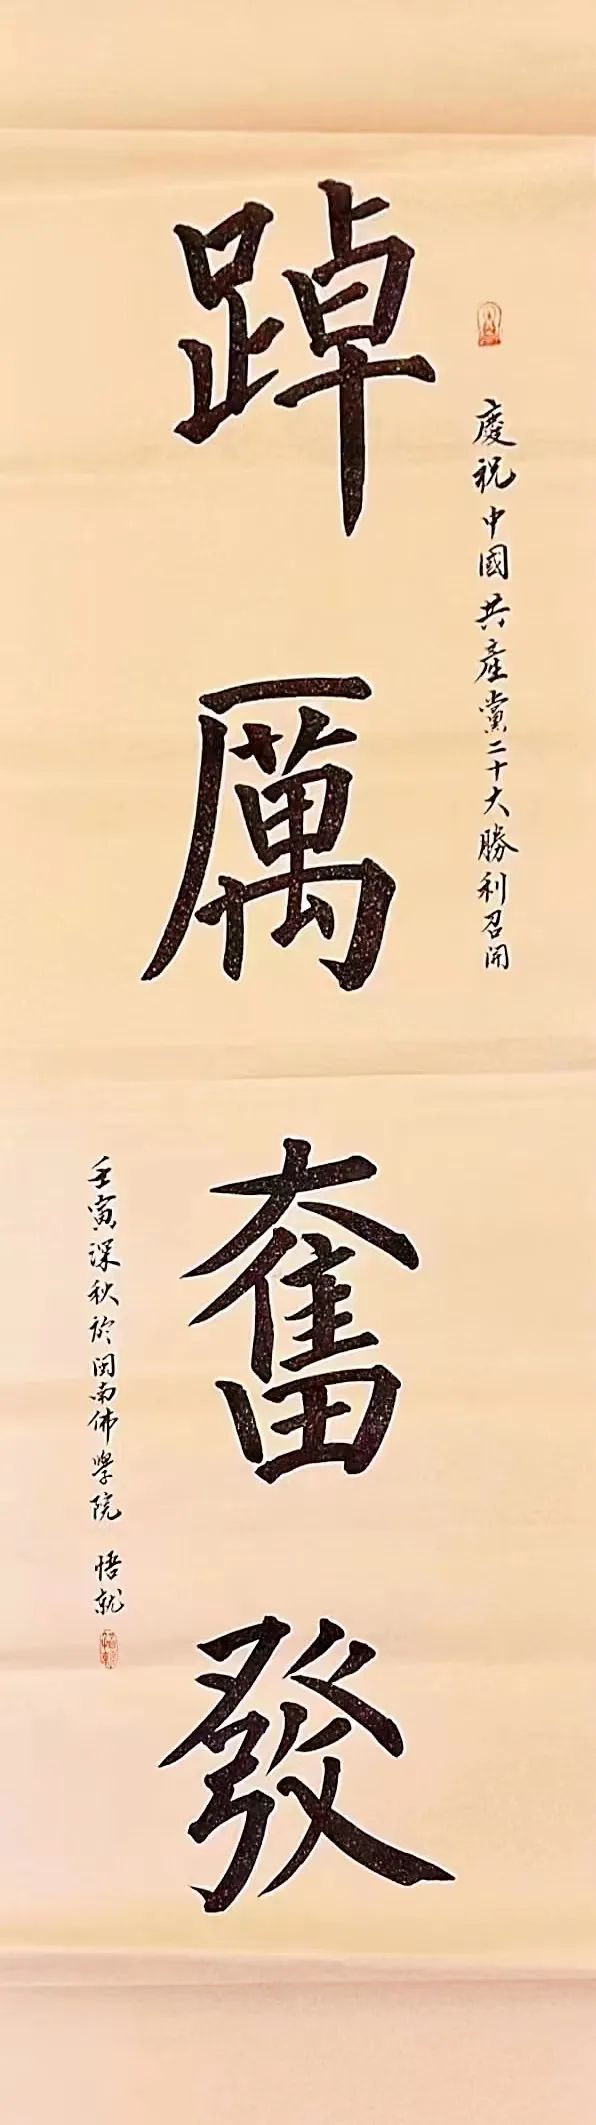 慶祝中國共產黨二十大勝利召開
踔厲奮發
壬寅深秋於閩南佛學院 悟就